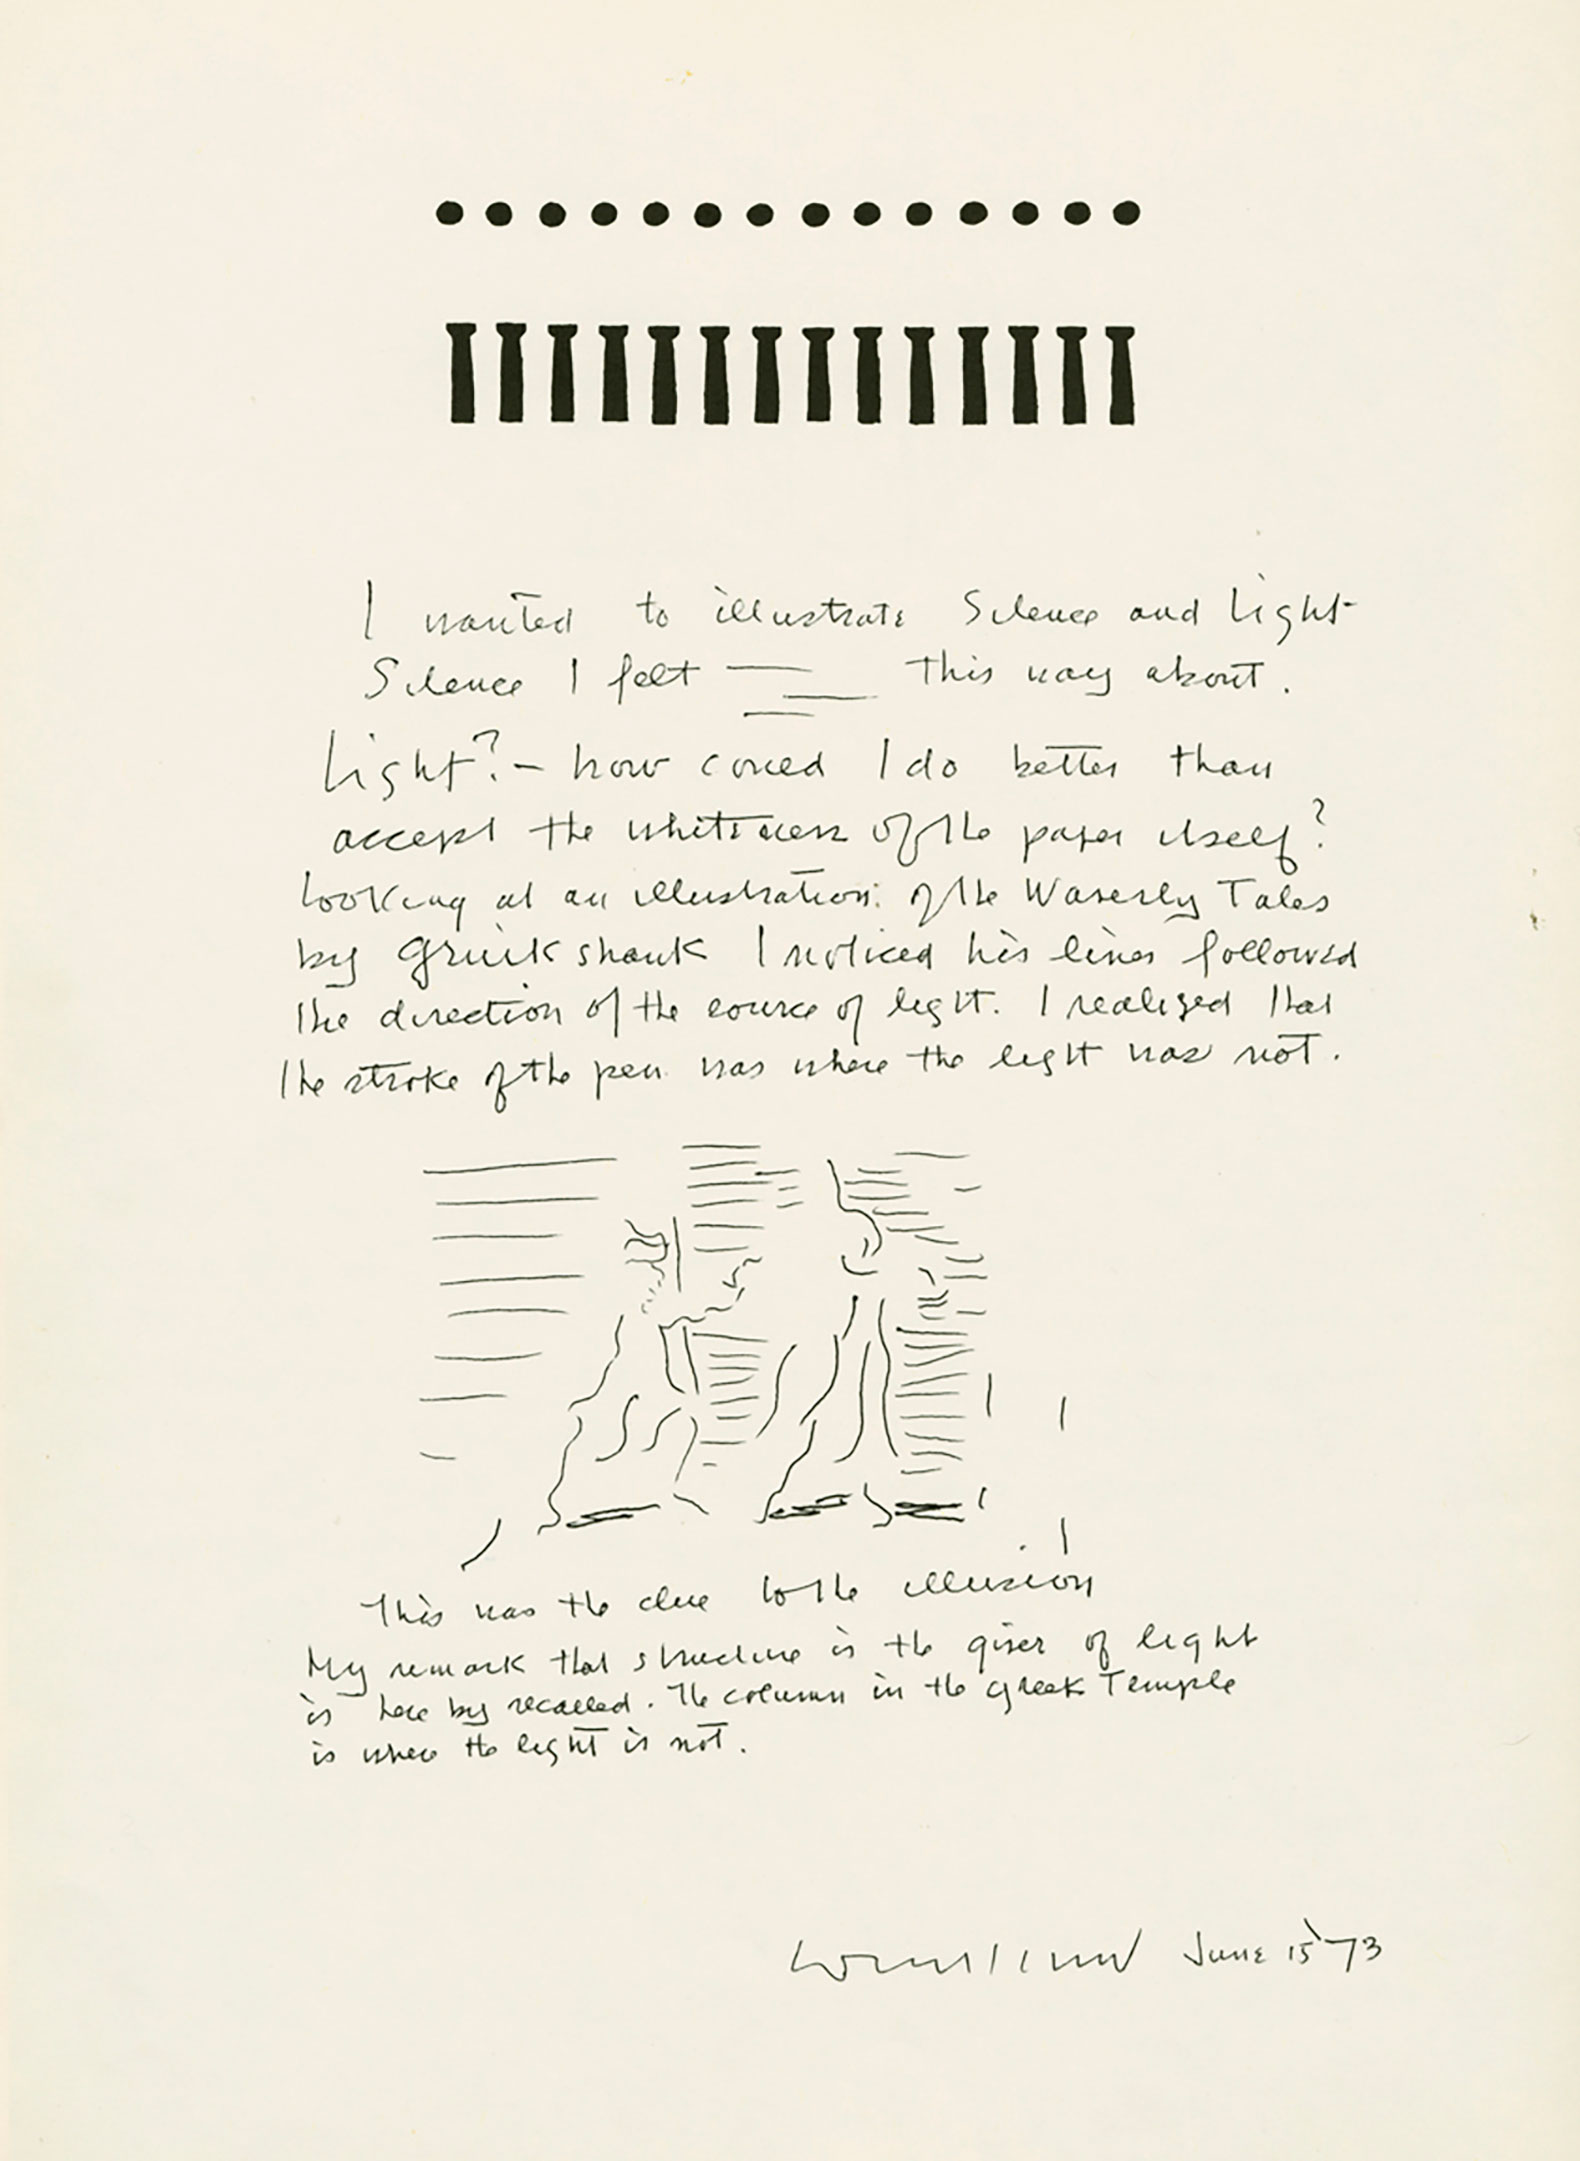 I wanted to illustrate Silence and Light
Silence I felt this way about.
Light? – how could I do better than
accept the whiteness of the paper itself?
Looking at an illustration of the Waverly Tales
by Gruikshank I noticed his lines followed
the direction of the source of light. I realized that
the stroke of the pen was where the light was not.
This was the clue to the illusion
My remark that structure is the giver of light
is here by recalled. The column in the Greek Temple
is where the light is not.
June 15 '73